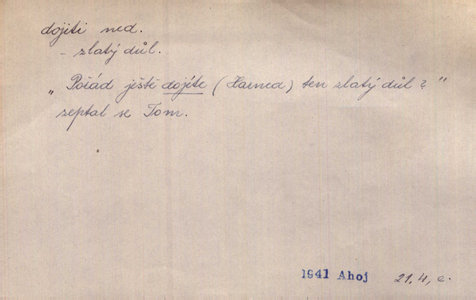 dojiti ned.
- zlatý důl.
„Pořád ještě dojíte (Harned) ten zlatý důl?"
zeptal se Tom.
1941 Ahoj 21,4, c.